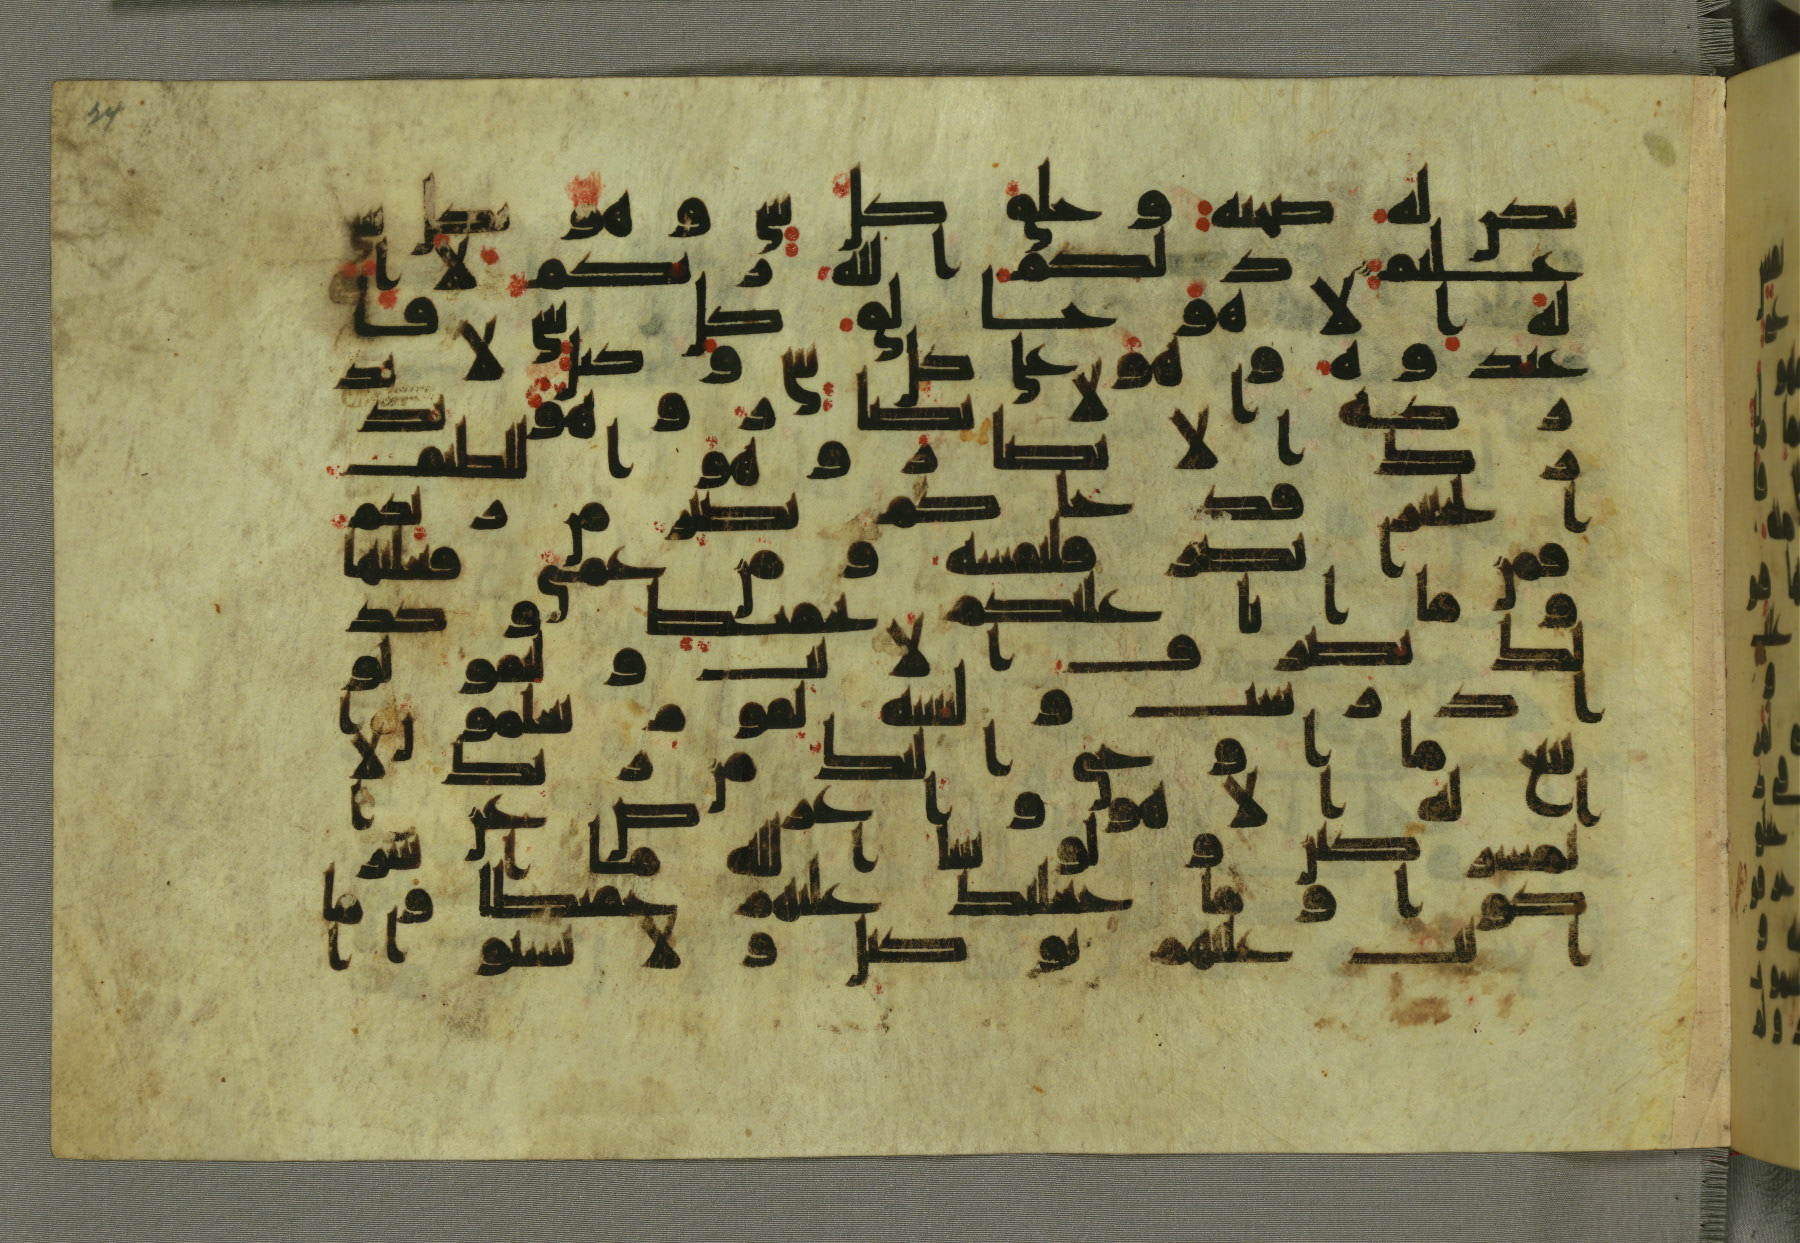 تكن له صحبه وخلق كل شى وهو بكل شى
عليم ذلكم الله ربكم لا ا
له الا هو خلق كل شى فا
عبدوه وهو على كل شى وكيل لا تد
ركه الابصر وهو يد
رك الابصر وهو اللطيف
الخبير قد جاكم بصير من ربكم
فمن ابصر فلنفسه ومن عمى فعليها
وما انا عليكم بحفيظ وكذ
لك نصرف الايت وليقولو
ا درست ولنبينه لقوم يعلمون ا
تبع ما اوحى اليك من ربك لا
اله الا هو واعرض عن ا
لمشركين ولو شا الله ما اشر
كوا وما جعلنك عليهم حفيظا وما
انت عليهم بوكيل ولا تسبوا ا